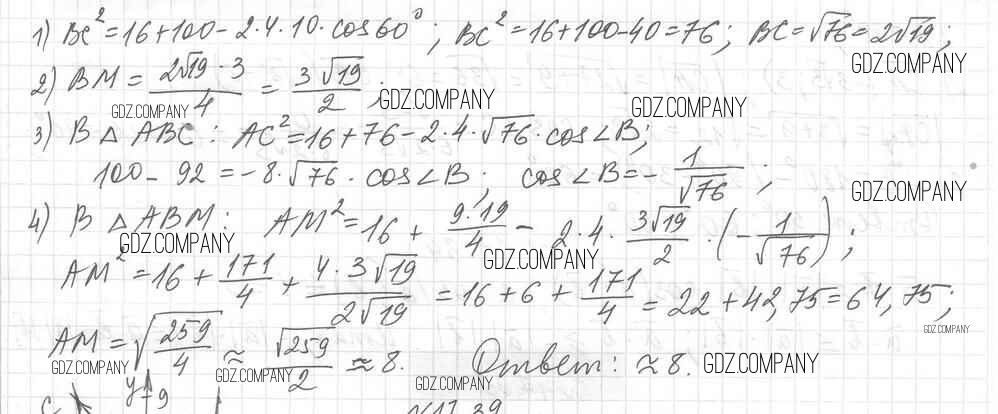 1) BC²=16+100-2·4·10·cos60°; BC²=16+100-40=76; BC=√76=2√19;
GDZ.COMPANY
2) BM = (2√19·3)/4 = (3√19)/2;
GDZ.COMPANY GDZ.COMPANY GDZ.COMPANY
3) В △ ABC: AC²=16+76-2·4·√76·cos∠B;
100-92=-8·√76·cos∠B; cos∠B=-1/√76;
GDZ.COMPANY
4) В △ ABM: AM²=16+(9·19)/4-2·4·(3√19)/2·(-1/√76);
GDZ.COMPANY GDZ.COMPANY
AM²=16+171/4+(4·3√19)/(2√19)=16+6+171/4=22+42,75=64,75;
GDZ.COMPANY
AM=√(259/4)≈√259/2≈8. Ответ: ≈8. GDZ.COMPANY
GDZ.COMPANY GDZ.COMPANY GDZ.COMPANY